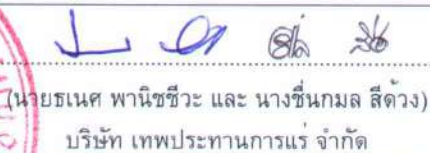 (นายธเนศ พานิชชีวะ และ นางชื่นกมล สีด้วง)
บริษัท เทพประทานการแร่ จำกัด